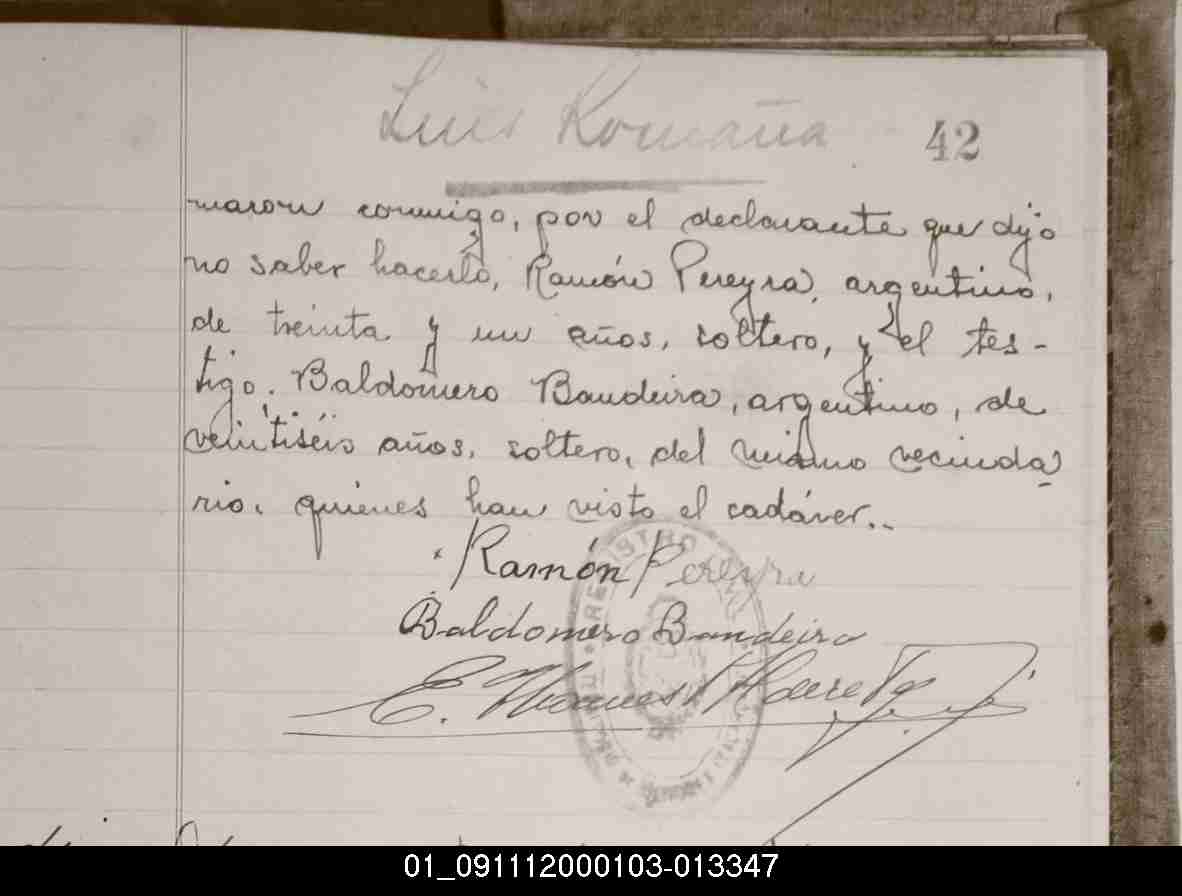 Luis Romaña 42
maron conmigo, por el declarante que dijo
no saber hacerlo, Ramón Pereyra, argentino,
de treinta y un años, soltero, y el tes-
tigo. Baldomero Bandeira, argentino, de
veintiséis años, soltero, del mismo vecinda-
rio. quienes han visto el cadáver..
Ramón Pereyra
Baldomero Bandeira
E.
REGISTRO
01_091112000103-013347